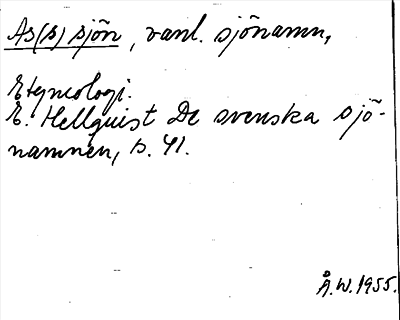 As(s)sjön, vanl. sjönamn,
Etymologi.
E. Hellquist De svenska sjö-
namnen, s. 41.
Å.W.1955.